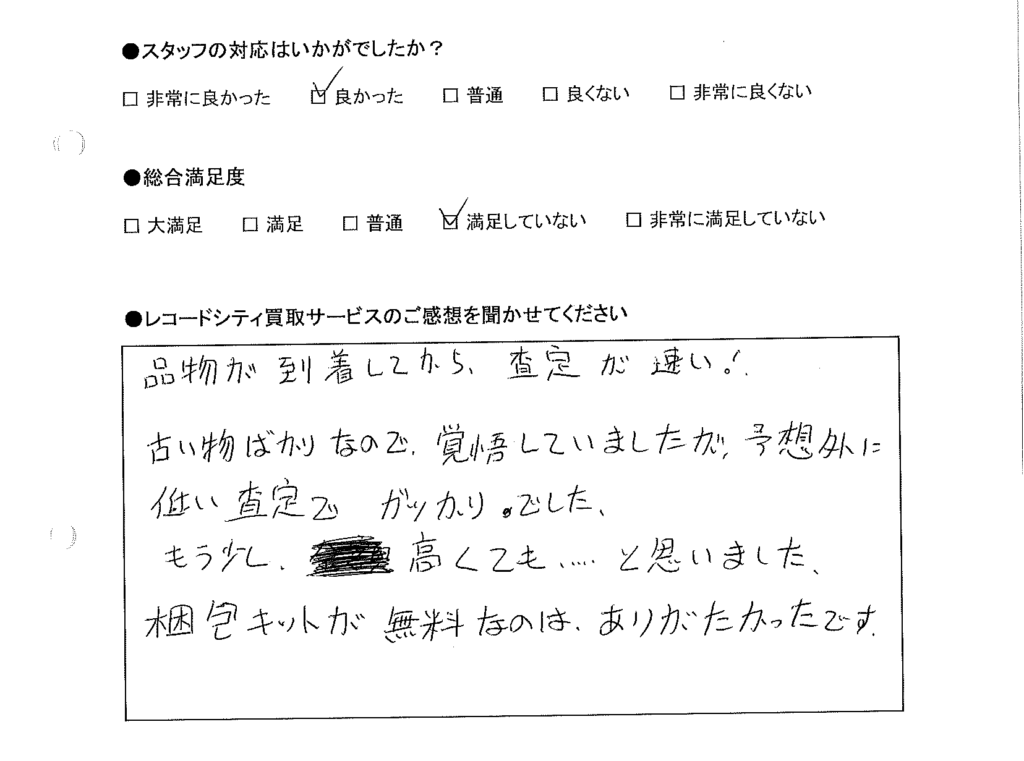 ●スタッフの対応はいかがでしたか？
□ 非常に良かった ☑ 良かった □ 普通 □ 良くない □ 非常に良くない
●総合満足度
□ 大満足 □ 満足 □ 普通 ☑ 満足していない □ 非常に満足していない
●レコードシティ買取サービスのご感想を聞かせてください
品物が到着してから、査定が速い!
古い物ばかりなので、覚悟していましたが、予想外に
低い査定で ガッカリ。でした、
もう少し、高くても、…. と思いました、
梱包キットが無料なのは、ありがたかったです.